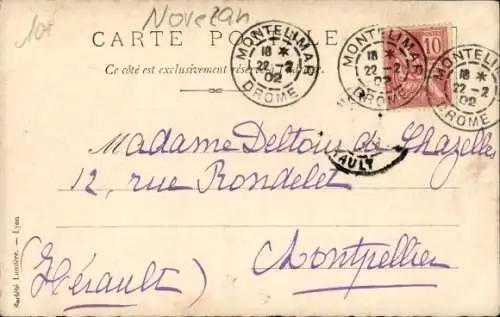 10f
Novezan
CARTE POSTALE
Ce côté est exclusivement réservé à l'adresse.
MONTELIMAR
18 *
22 - 2
02
DROME
MONTELIMAR
18 *
22 - 2
02
DROME
10
MONTELIMAR
18 *
22 - 2
02
DROME
Madame Deltour de Chazelles
12, rue Rondelet
Montpellier
(Hérault)
Société Lumière. — Lyon